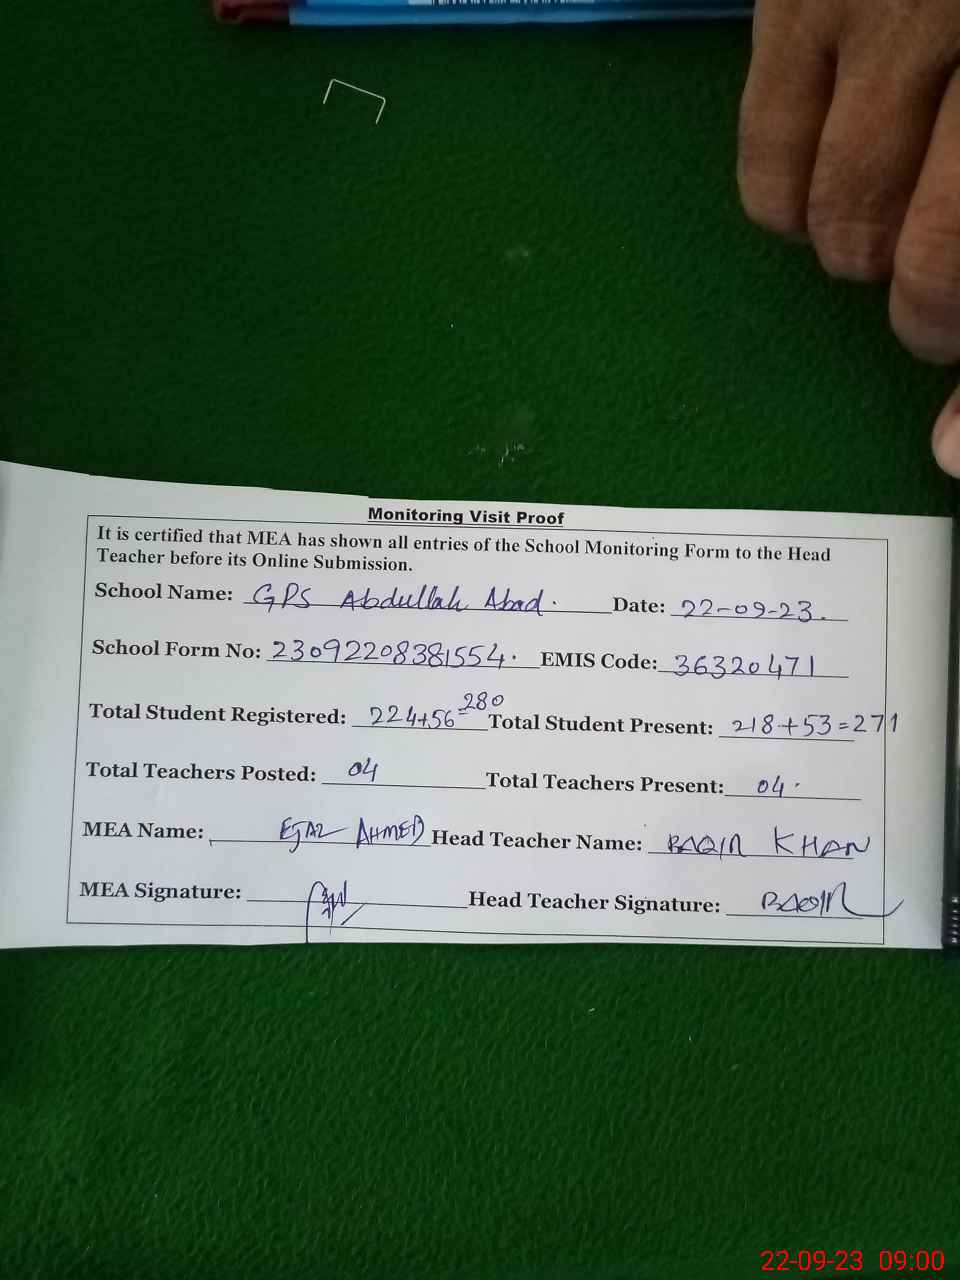 Monitoring Visit Proof
It is certified that MEA has shown all entries of the School Monitoring Form to the Head
Teacher before its Online Submission.
School Name: GPS Abdullah Abad. Date: 22-09-23.
School Form No: 23092208381554. EMIS Code: 36320471
Total Student Registered: 224+56=280 Total Student Present: 218+53=271
Total Teachers Posted: 04 Total Teachers Present: 04.
MEA Name: EJAZ AHMED Head Teacher Name: BAQIR KHAN
MEA Signature: Head Teacher Signature: BAQIR
22-09-23 09:00